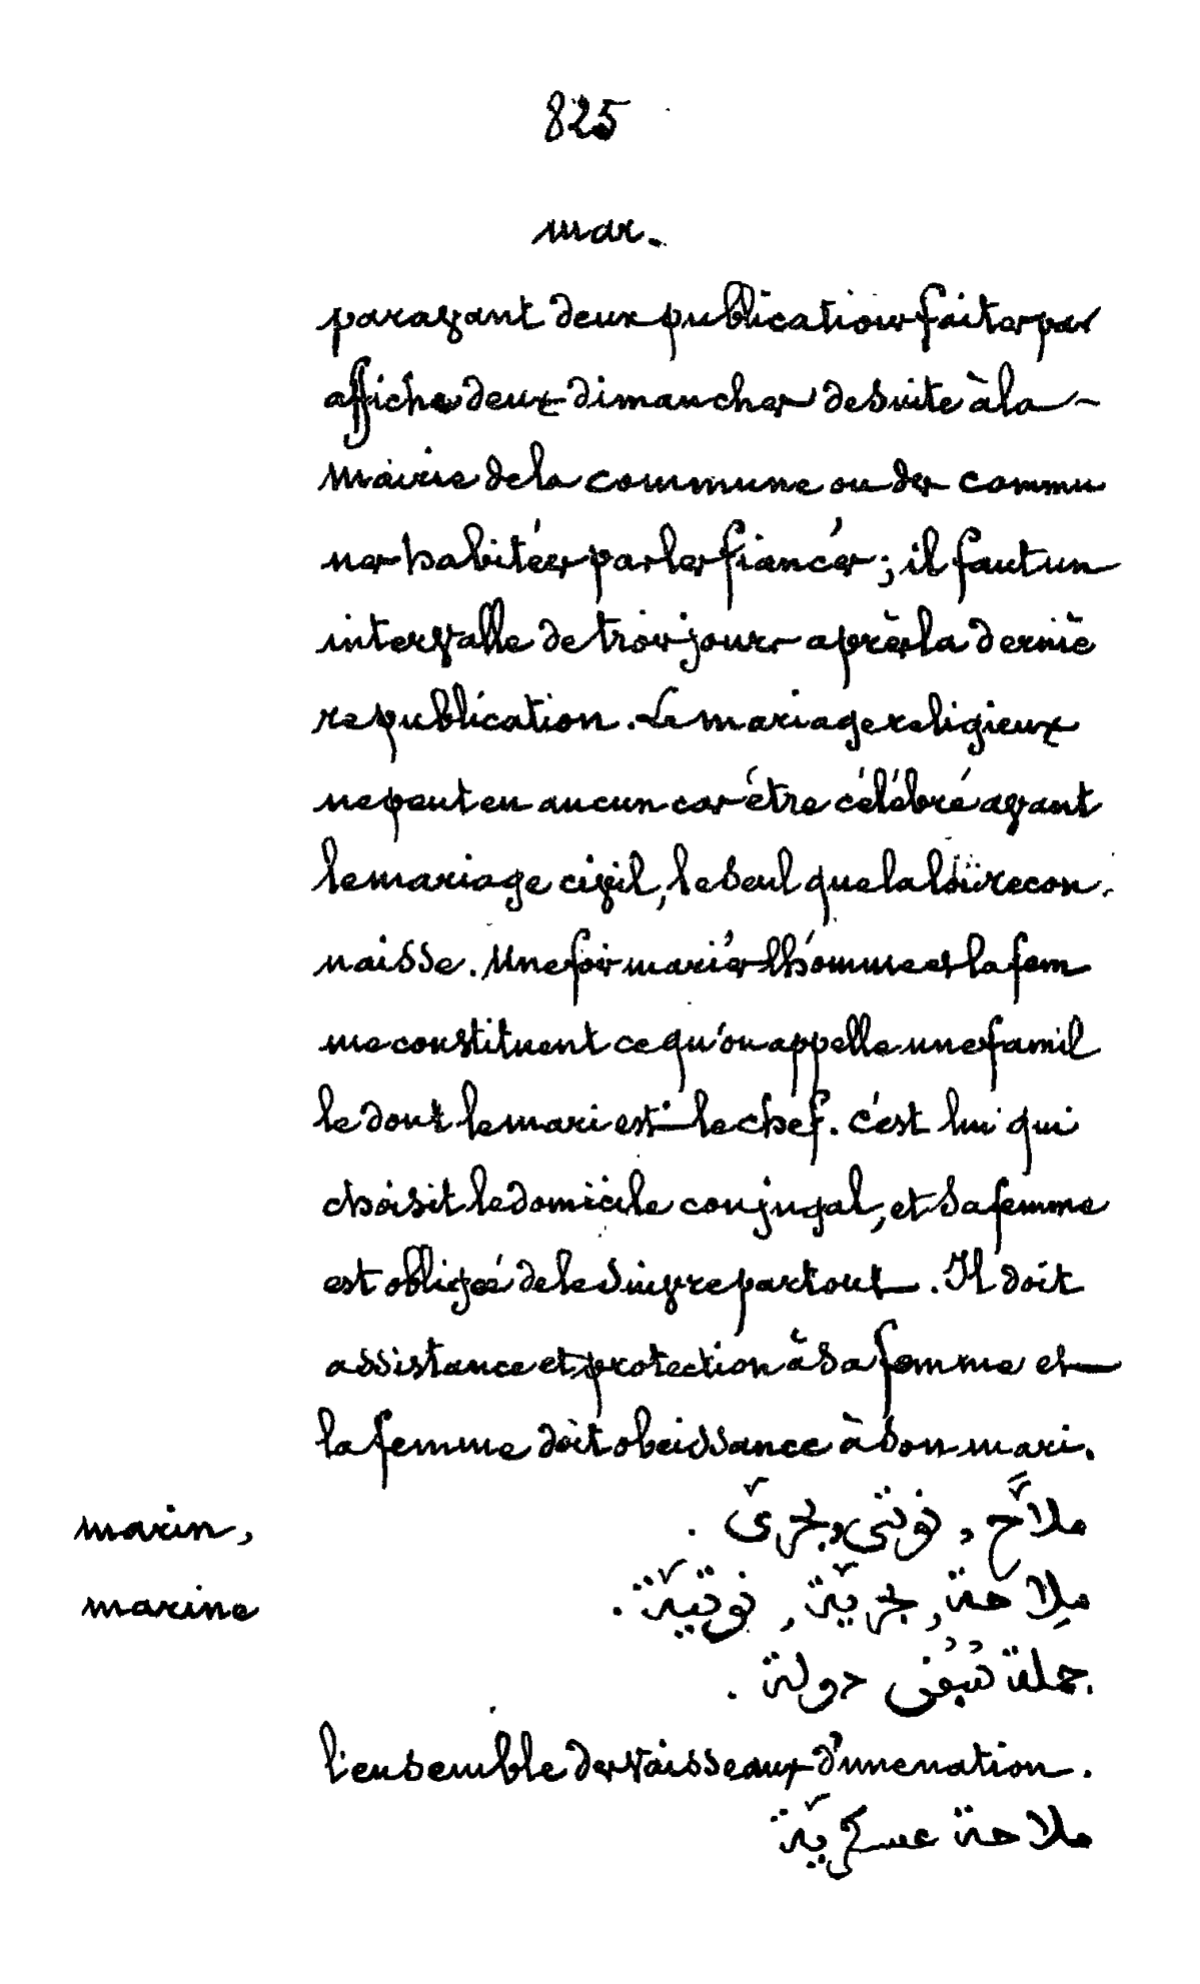 825
mar.
paravant deux publications faites par
affiche deux dimanches de suite à la
mairie de la commune ou des commu
nes habitées par les fiancés ; il faut un
intervalle de trois jours après la derniè
re publication. Le mariage religieux
ne peut en aucun cas être célébré avant
le mariage civil, le seul que la loi recon.
naisse. Une fois mariés l'homme et la fem
me constituent ce qu'on appelle une famil
le dont le mari est le chef. c'est lui qui
choisit le domicile conjugal, et sa femme
est obligée de le suivre partout. Il doit
assistance et protection à sa femme et
la femme doit obeissance à son mari.
marin, ملاَّح , نوتيّ , بحريّ .
marine مِلاحة , بحريّة , نوتيّة .
جملة سُفُن دولة .
l'ensemble des vaisseaux d'une nation.
ملاحة عسكريّة